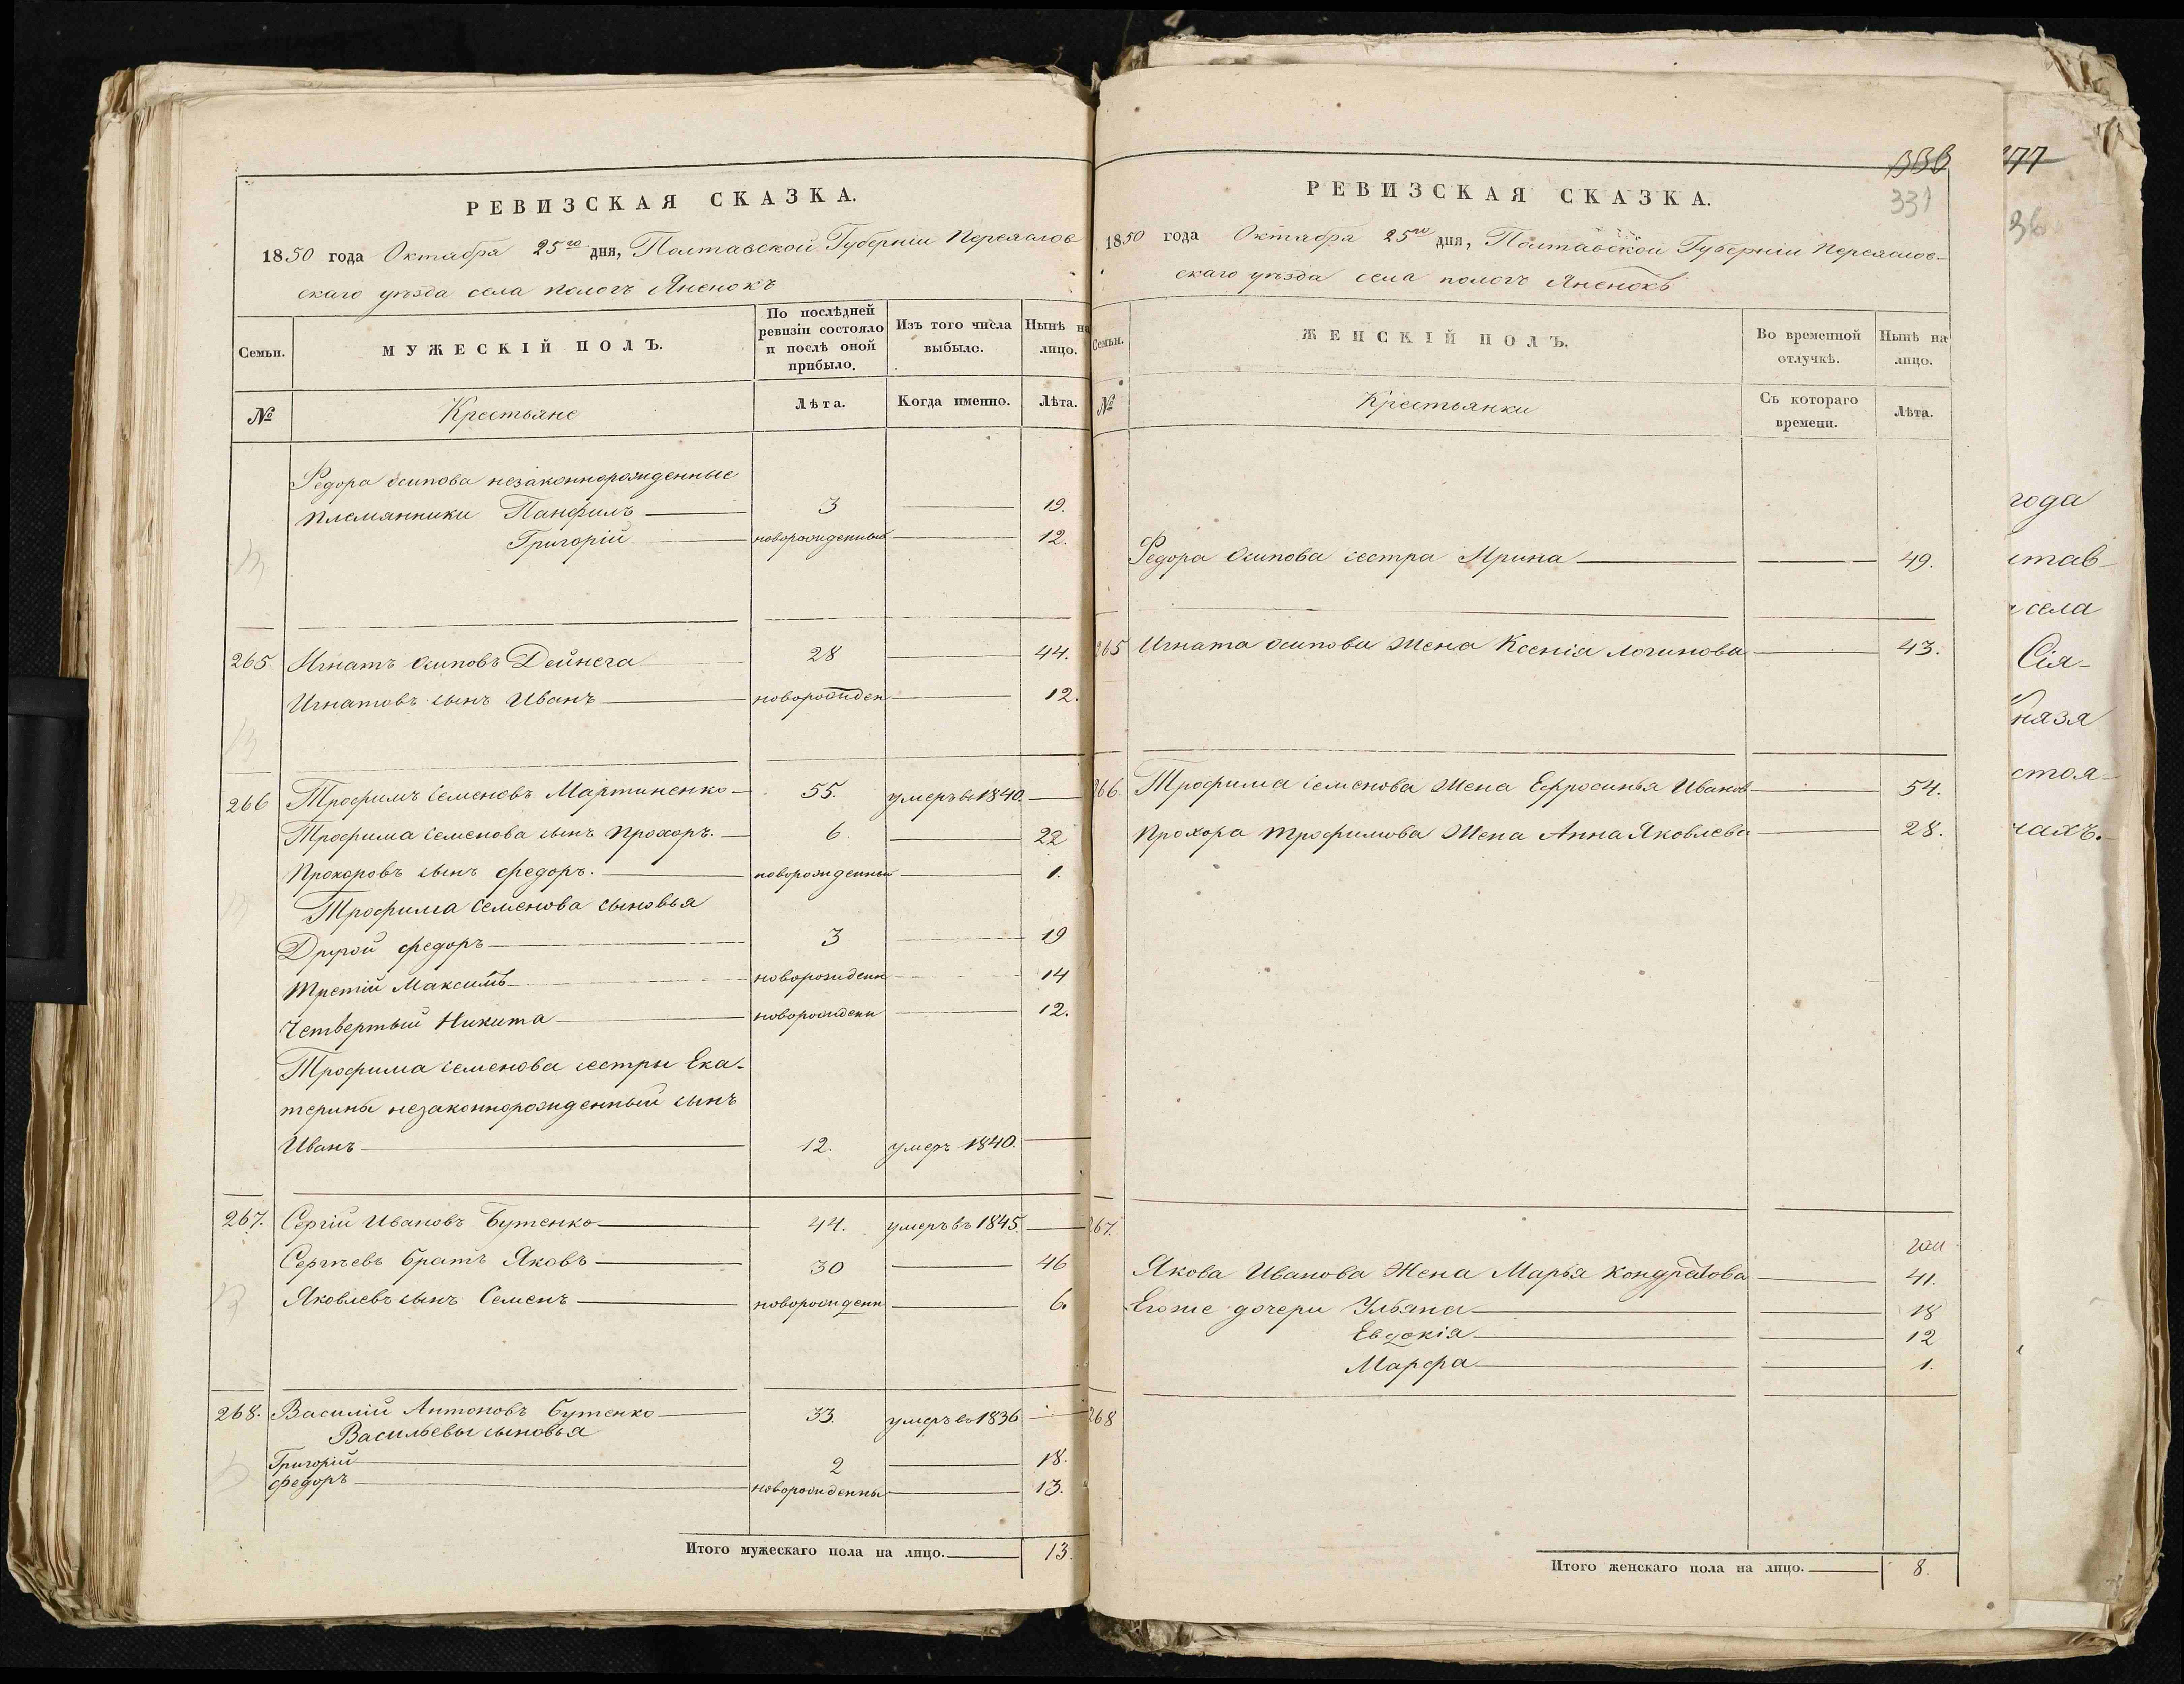 РЕВИЗСКАЯ СКАЗКА.
1850 года Октября 25го дня, Полтавской Губерніи Переяслов
скаго уѣзда села пологъ Яненокъ
Семьи.
МУЖЕСКІЙ ПОЛЪ.
По послѣдней ревизіи состояло и послѣ оной прибыло.
Изъ того числа выбыло.
Нынѣ на лицо.
№
Крестьяне
Лѣта.
Когда именно.
Лѣта.
Федора осипова незаконнорожденные
племянники Панфилъ 3 19.
Григорій новорожденный 12.
265. Игнатъ осиповъ Дейнега 28 44.
Игнатовъ сынъ Иванъ новорожден 12.
266 Трофимъ семеновъ Мартиненко 55. умеръ въ 1840.
Трофима семенова сынъ прохоръ. 6. 22
Прохоровъ сынъ федоръ. новорожденный 1.
Трофима семенова сыновья
Другой федоръ 3 19
третій Максимъ новорожденн 14
четвертый Никита новорожденн 12.
Трофима семенова сестры Ека-
терины незаконнорожденный сынъ
Иванъ 12. умеръ 1840.
267. Сергій Ивановъ Бутенко 44. умеръ въ 1845.
Сергѣевъ братъ Яковъ 30 46
Яковлевъ сынъ Семенъ новорожденн 6.
268. Василій Антоновъ Бутенко 33. умеръ въ 1836
Васильевы сыновья
Григорій 2 18.
федоръ новорожденны 13.
Итого мужескаго пола на лицо. 13.
331
РЕВИЗСКАЯ СКАЗКА.
1850 года Октября 25го дня, Полтавской Губерніи Переяслов-
скаго уѣзда села пологъ Яненокъ
Семьи.
ЖЕНСКІЙ ПОЛЪ.
Во временной отлучкѣ.
Нынѣ на лицо.
№
Крестьянки
Съ котораго времени.
Лѣта.
Федора осипова сестра Ирина 49.
265 Игната осипова жена Ксенія Логинова 43.
266. Трофима семенова жена Ефросинья Иванов 54.
прохора трофимова жена Анна Яковлева 28.
267.
Якова Иванова жена Марья Кондратова 41.
Егоже дочери Ульяна 18
Евдокія 12
Марфа 1.
268
Итого женскаго пола на лицо. 8.
77
36
года
став-
села
Сія-
князя
стоя-
чахъ.